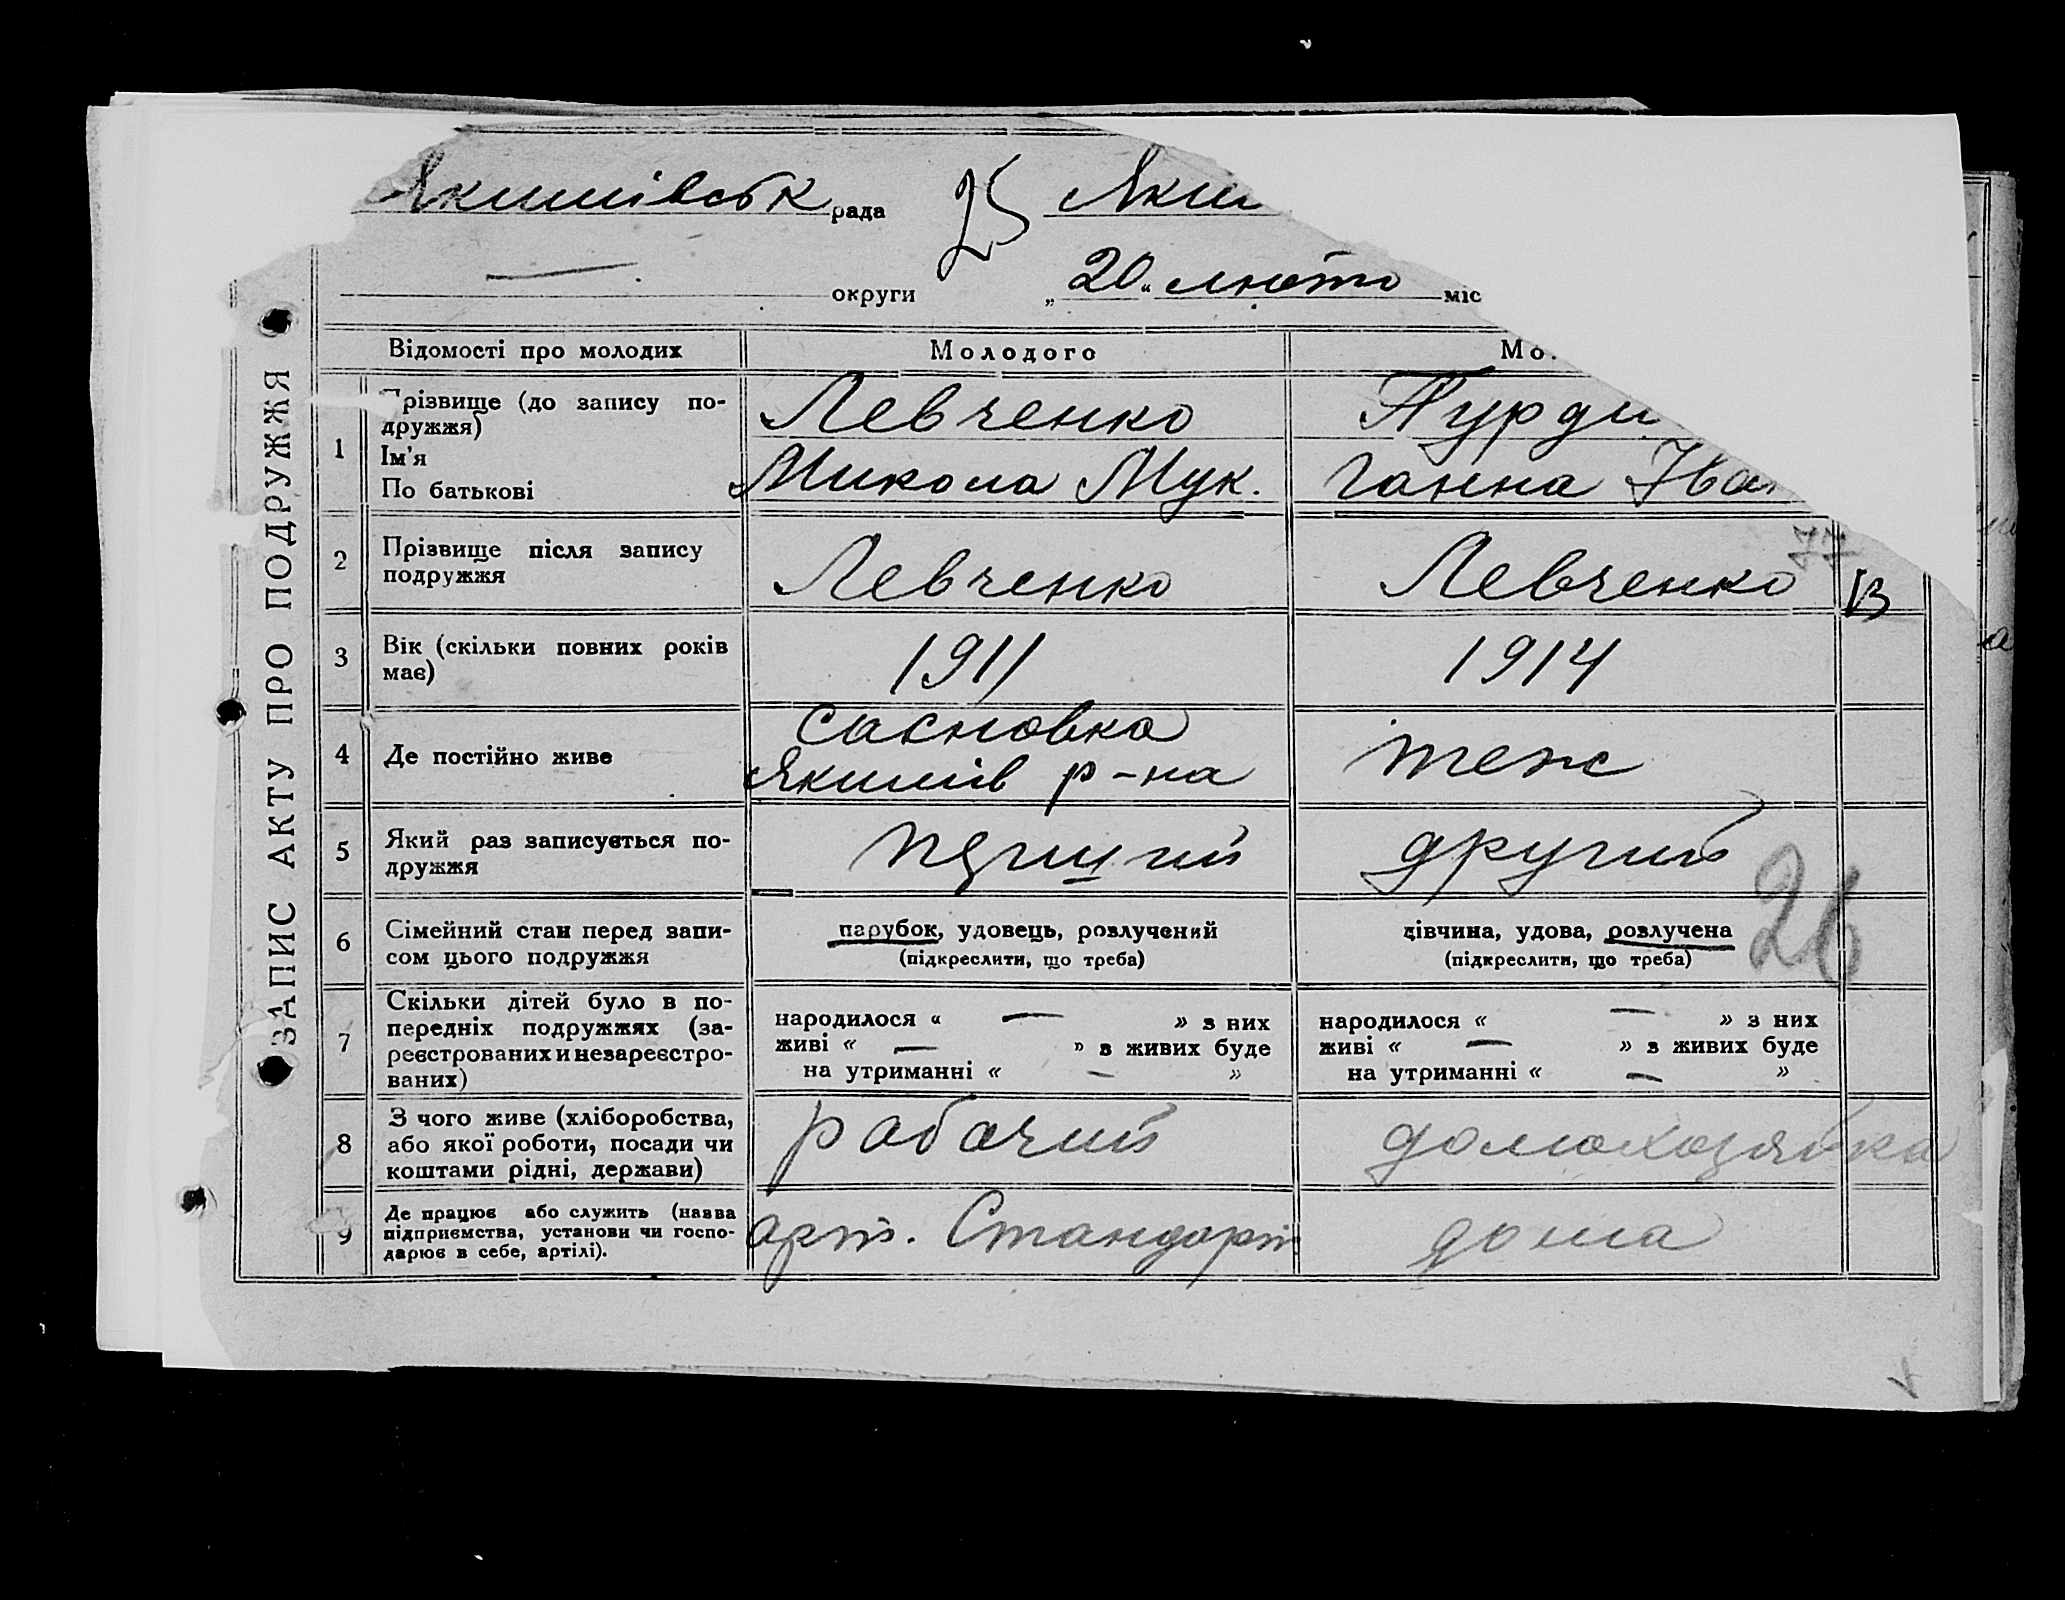 Якимівськ рада 25 Яким
округи „20“ люто міс
ЗАПИС АКТУ ПРО ПОДРУЖЖЯ
Відомості про молодих Молодого Мо
1 Прізвище (до запису по-
дружжя) Левченко
Ім'я
По батькові Микола Мук. Ганна Іван
2 Прізвище після запису
подружжя Левченко Левченко
3 Вік (скільки повних років
має) 1911 1914
4 Де постійно живе сасновка
Якимів р-на теж
5 Який раз записується по-
дружжя другий
6 Сімейний стан перед запи-
сом цього подружжя
парубок, удовець, розлучений
(підкреслити, що треба)
дівчина, удова, розлучена
(підкреслити, що треба)
26
7 Скільки дітей було в по-
передніх подружжях (за-
реєстрованих и незареєстро-
ваних)
народилося « — » з них
живі « — » з живих буде
на утриманні « — »
народилося « — » з них
живі « — » з живих буде
на утриманні « — »
8 З чого живе (хліборобства,
або якої роботи, посади чи
коштами рідні, держави)
рабочий домохозяйка
9 Де працює або служить (назва
підприємства, установи чи госпо-
дарює в себе, артілі).
арт. Стандарт дома